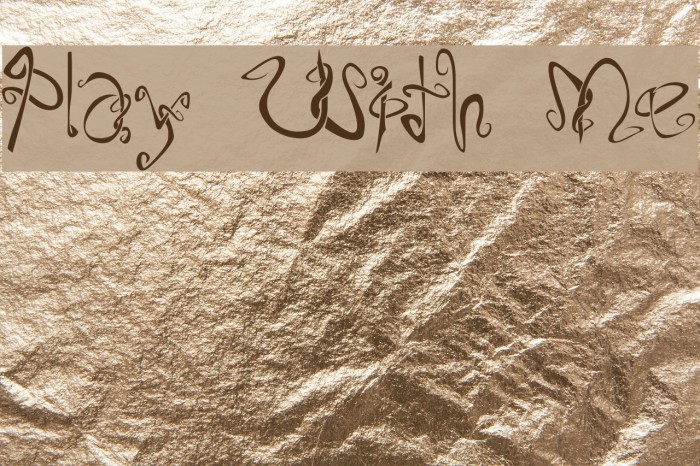 Play With Me